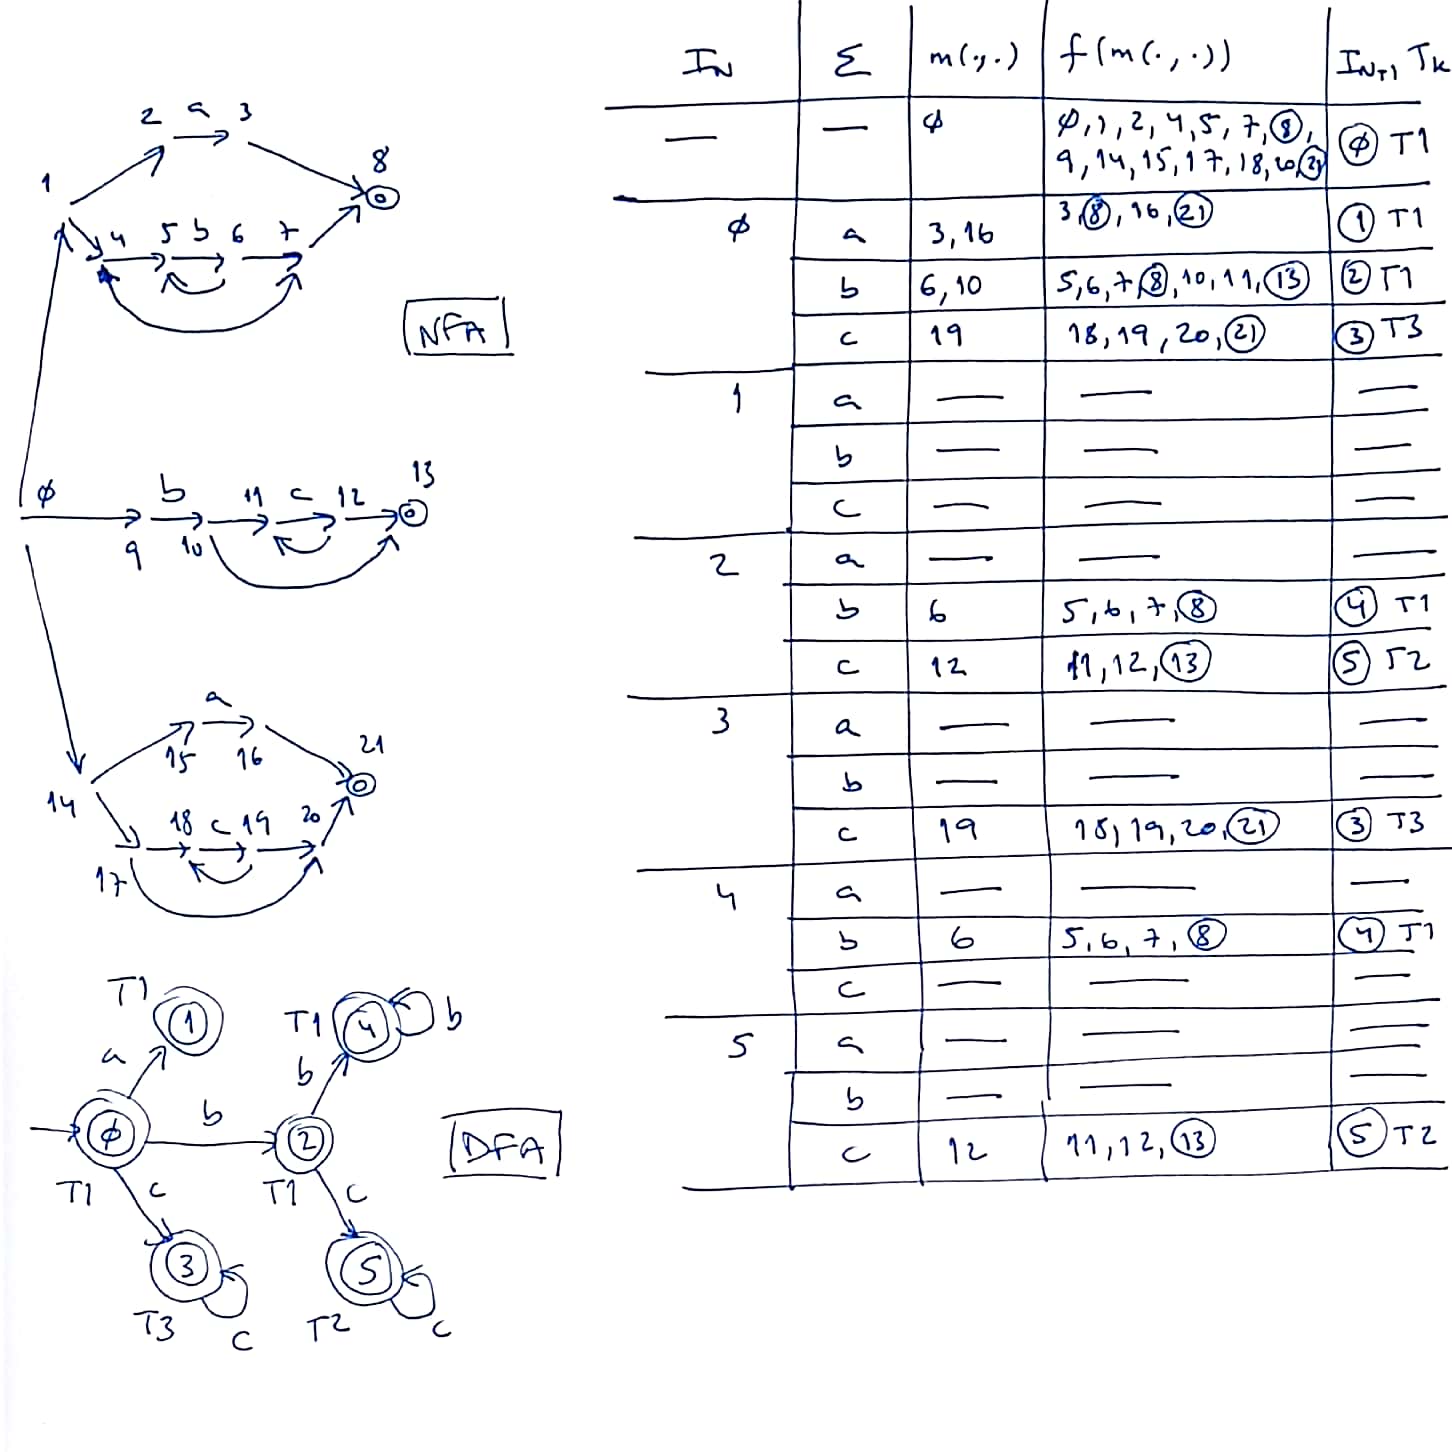 2 a 3
1
8
4 5 b 6 7
NFA
φ
b 11 c 12 13
9 10
a
15 16 21
14
18 c 19 20
17
T1 1
T1 4 b
a b
φ b 2
DFA
T1 c T1 c
3 5
T3 c T2 c
IN Σ m(.,.) f(m(.,.)) IN+1 Tk
— — φ φ,1,2,4,5,7,8, φ T1
9,14,15,17,18,20,21
φ a 3,16 3,8,16,21 1 T1
b 6,10 5,6,7,8,10,11,13 2 T1
c 19 18,19,20,21 3 T3
1 a — — —
b — — —
c — — —
2 a — — —
b 6 5,6,7,8 4 T1
c 12 11,12,13 5 T2
3 a — — —
b — — —
c 19 18,19,20,21 3 T3
4 a — — —
b 6 5,6,7,8 4 T1
c — — —
5 a — — —
b — — —
c 12 11,12,13 5 T2